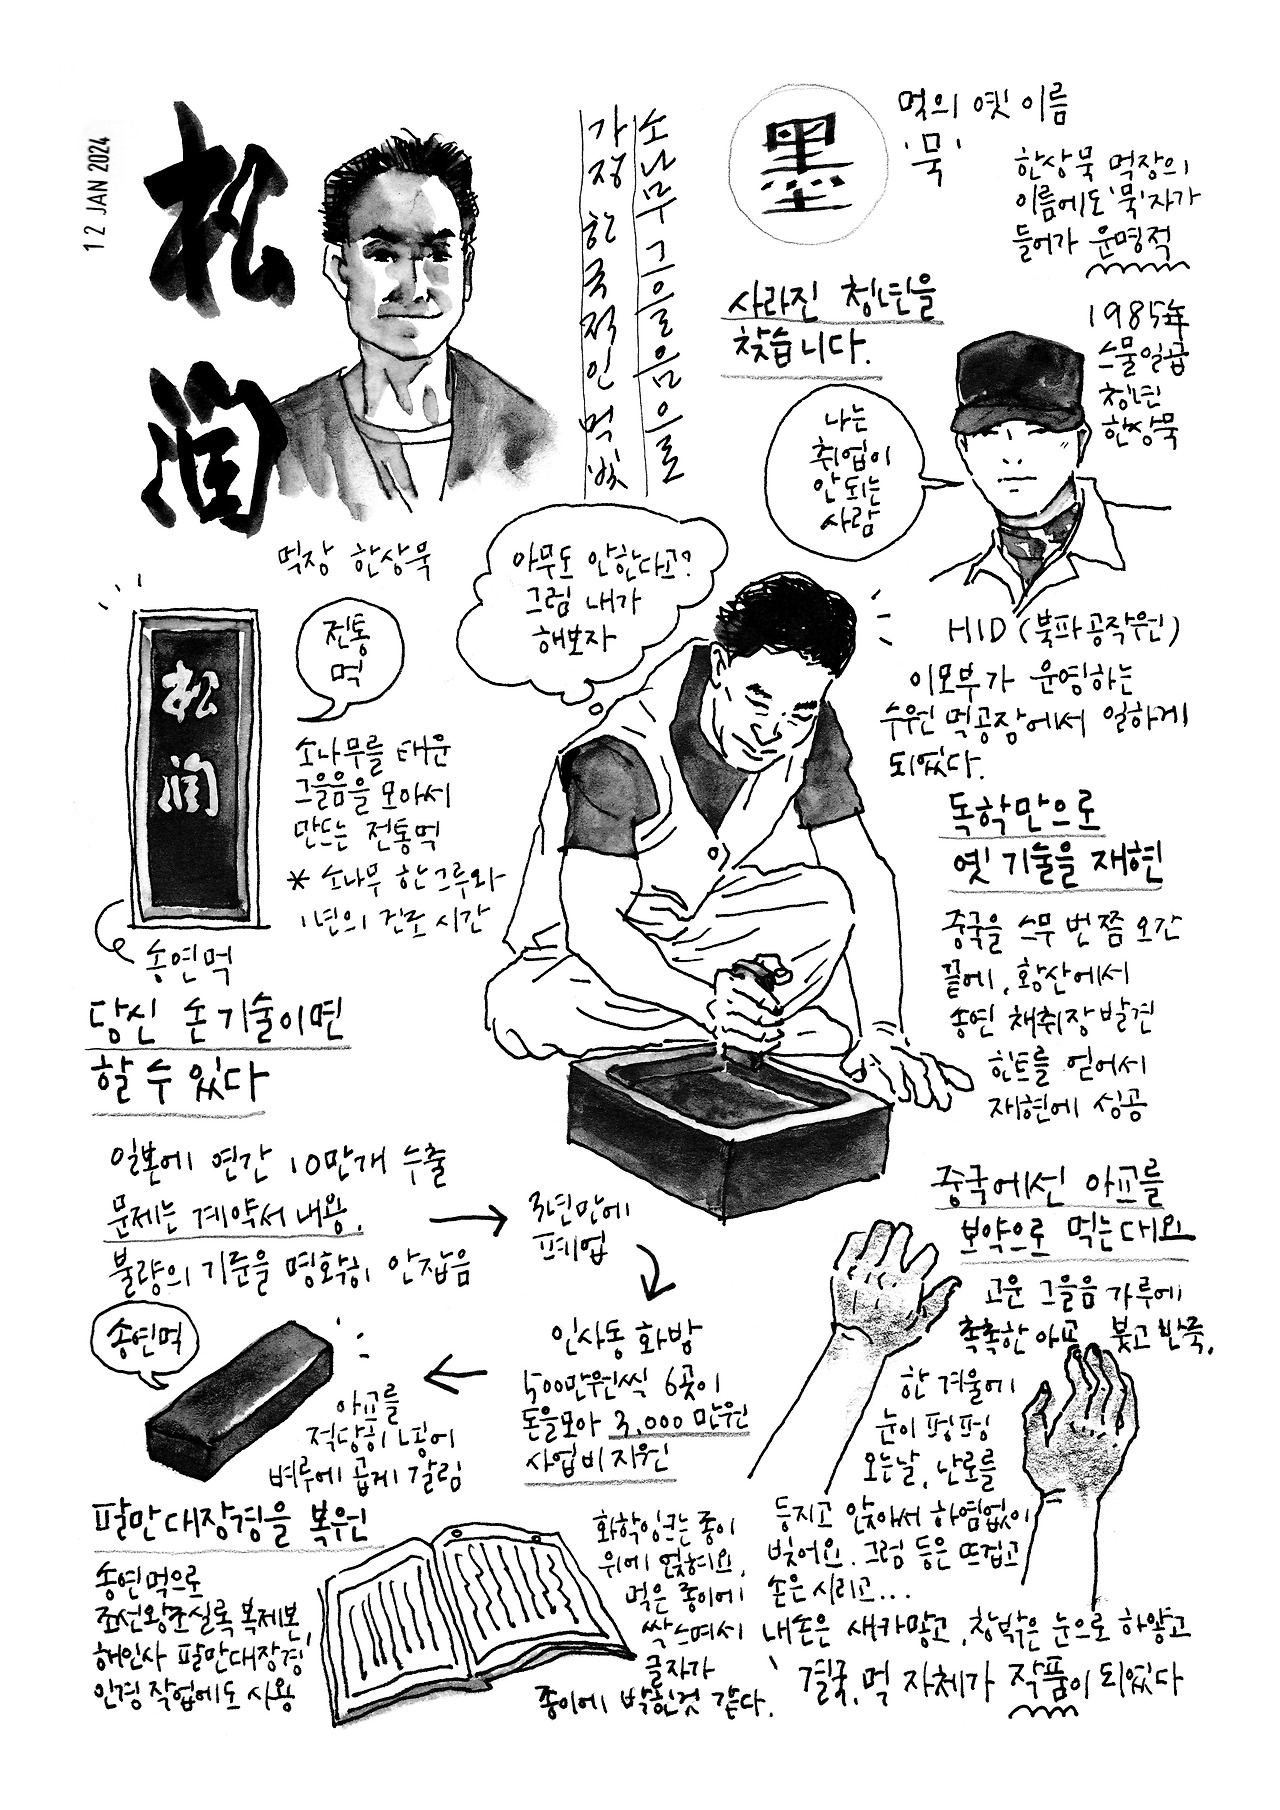 12 JAN 2024
松
润
먹장 한상묵
소나무 그을음으로
가장 한국적인 먹빛
墨
먹의 옛 이름
'묵'
한상묵 먹장의
이름에도 '묵'자가
들어가 운명적
사라진 청년을
찾습니다.
1985年
스물일곱
청년
한상묵
나는
취업이
안 되는
사람
HID (북파공작원)
이모부가 운영하는
수원 먹공장에서 일하게
되었다.
아무도 안한다고?
그럼 내가
해보자
松
润
전통
먹
소나무를 태운
그을음을 모아서
만드는 전통먹
* 소나무 한그루와
1년의 건조 시간
송연먹
독학만으로
옛 기술을 재현
중국을 스무 번쯤 오간
끝에, 황산에서
송연 채취장 발견
힌트를 얻어서
재현에 성공
당신 손 기술이면
할 수 있다
일본에 연간 10만개 수출
문제는 계약서 내용.
불량의 기준을 명확히 안잡음
3년만에
폐업
인사동 화방
500만원씩 6곳이
돈을모아 3,000만원
사업비 지원
송연먹
아교를
적당히 넣어
벼루에 곱게 갈림
중국에선 아교를
보약으로 먹는대요
고운 그을음 가루에
촉촉한 아교 붓고 반죽.
한 겨울에
눈이 펑펑
오는날, 난로를
등지고 앉아서 하염없이
빚어요. 그럼 등은 뜨겁고
손은 시리고...
내손은 새카맣고, 창밖은 눈으로 하얗고
결국, 먹 자체가 작품이 되었다
팔만대장경을 복원
송연먹으로
조선왕조실록 복제본,
해인사 팔만대장경
인경 작업에도 사용
화학잉크는 종이
위에 얹혀요.
먹은 종이에
싹 스며서
글자가
종이에 박힌것 같다.